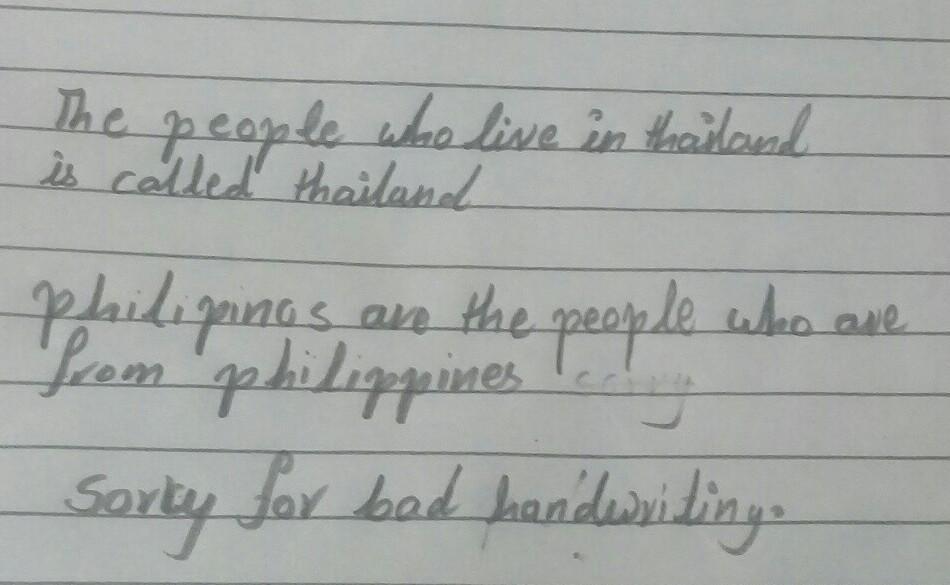 The people who live in thailand
is called thailand
philipinos are the people who are
from philippines
Sorry for bad handwriting.